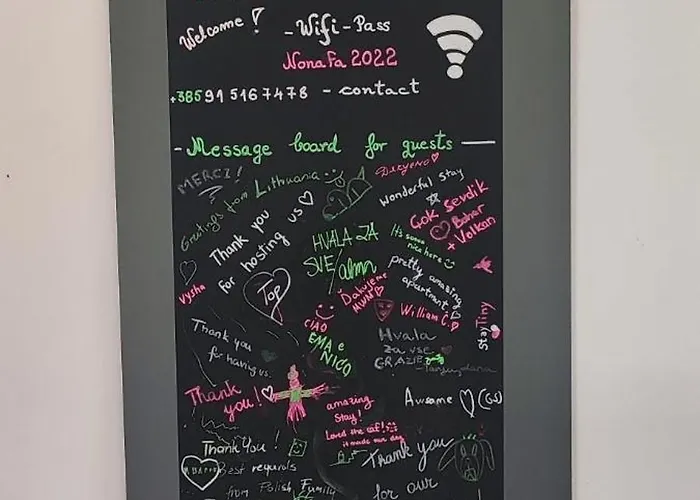 Welcome!
-Wifi-Pass
NonaFa 2022
+385915167478 - contact
-Message board for guests
MERCI!
Greetings from Lithuania
wonderful stay
Çok sevdik
Bahar
+ Volkan
Thank you
for hosting us
HVALA ZA
SVE
It's sooo
nice here
pretty amazing
apartment
Vysha
Top
Dakujeme
William C.
StayTiny
CIAO
EMA e
NICO
Thank you
for having us.
Hvala
za vse
GRAZIE
Thank
you!
amazing
Stay!
Loved the cat!
it made our day
Awsome
(GS)
Thank You!
Best regards
from Polish Family
Thank you
for our